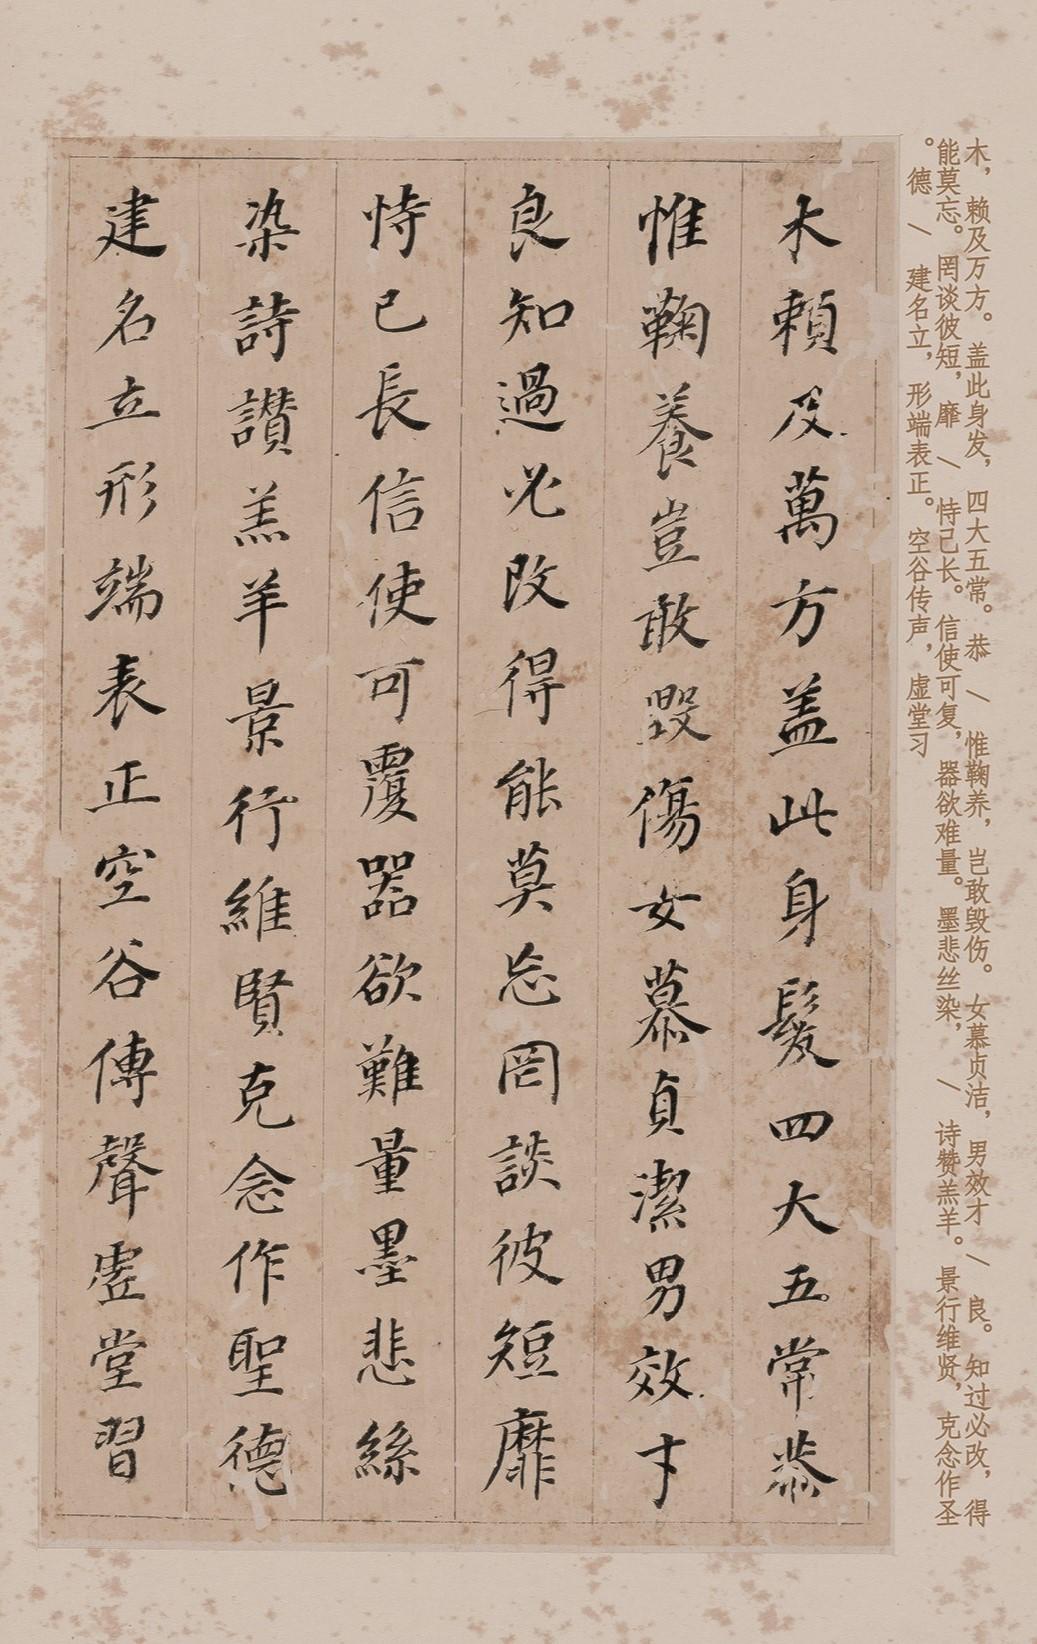 木，赖及万方。盖此身发，四大五常。恭 / 惟鞠养，岂敢毁伤。女慕贞洁，男效才 / 良。知过必改，得
能莫忘。罔谈彼短，靡 / 恃己长。信使可复，器欲难量。墨悲丝染， / 诗赞羔羊。景行维贤，克念作圣
。德 / 建名立，形端表正。空谷传声，虚堂习
木賴及萬方盖此身髮四大五常恭
惟鞠養豈敢毀傷女慕貞潔男效才
良知過必改得能莫忘罔談彼短靡
恃己長信使可覆器欲難量墨悲絲
染詩讃羔羊景行維賢克念作聖德
建名立形端表正空谷傳聲虛堂習